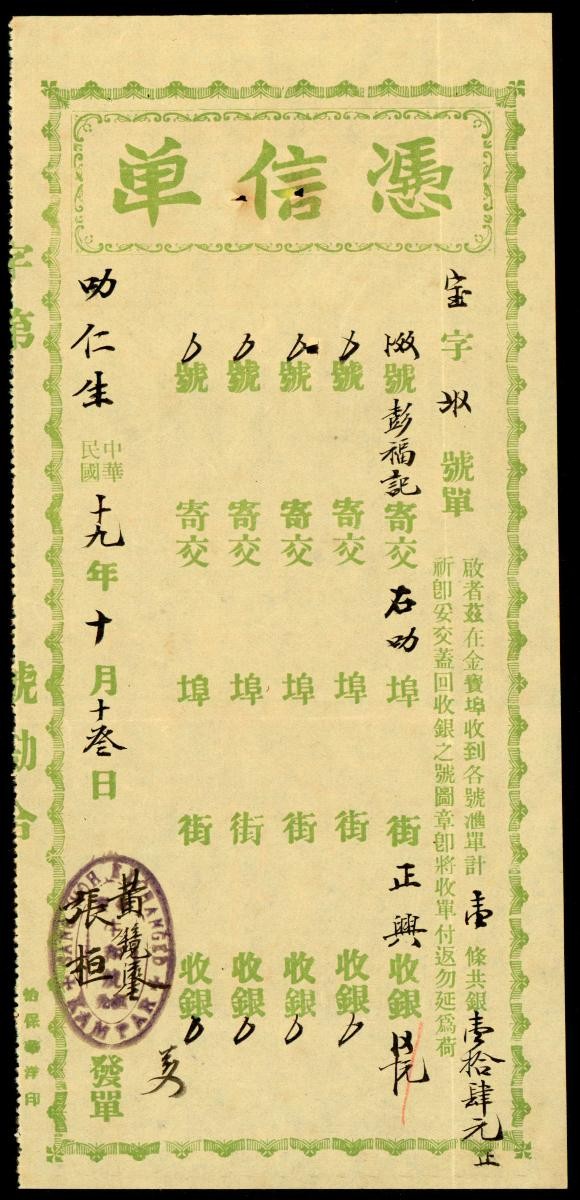 憑信单
宝字 號單
啟者茲在金寶埠收到各號滙單計壹條共銀壹拾肆元正
祈卽妥交蓋回收銀之號圖章卽將收單付返勿延爲荷
號彭福記寄交石叻埠街正興收銀
號寄交埠街收銀
號寄交埠街收銀
號寄交埠街收銀
號寄交埠街收銀
叻仁生
中華民國十九年十月十叁日
黃鏡鎏
張桓
發單
KAMPAR
怡保華洋印
字第 號勘合